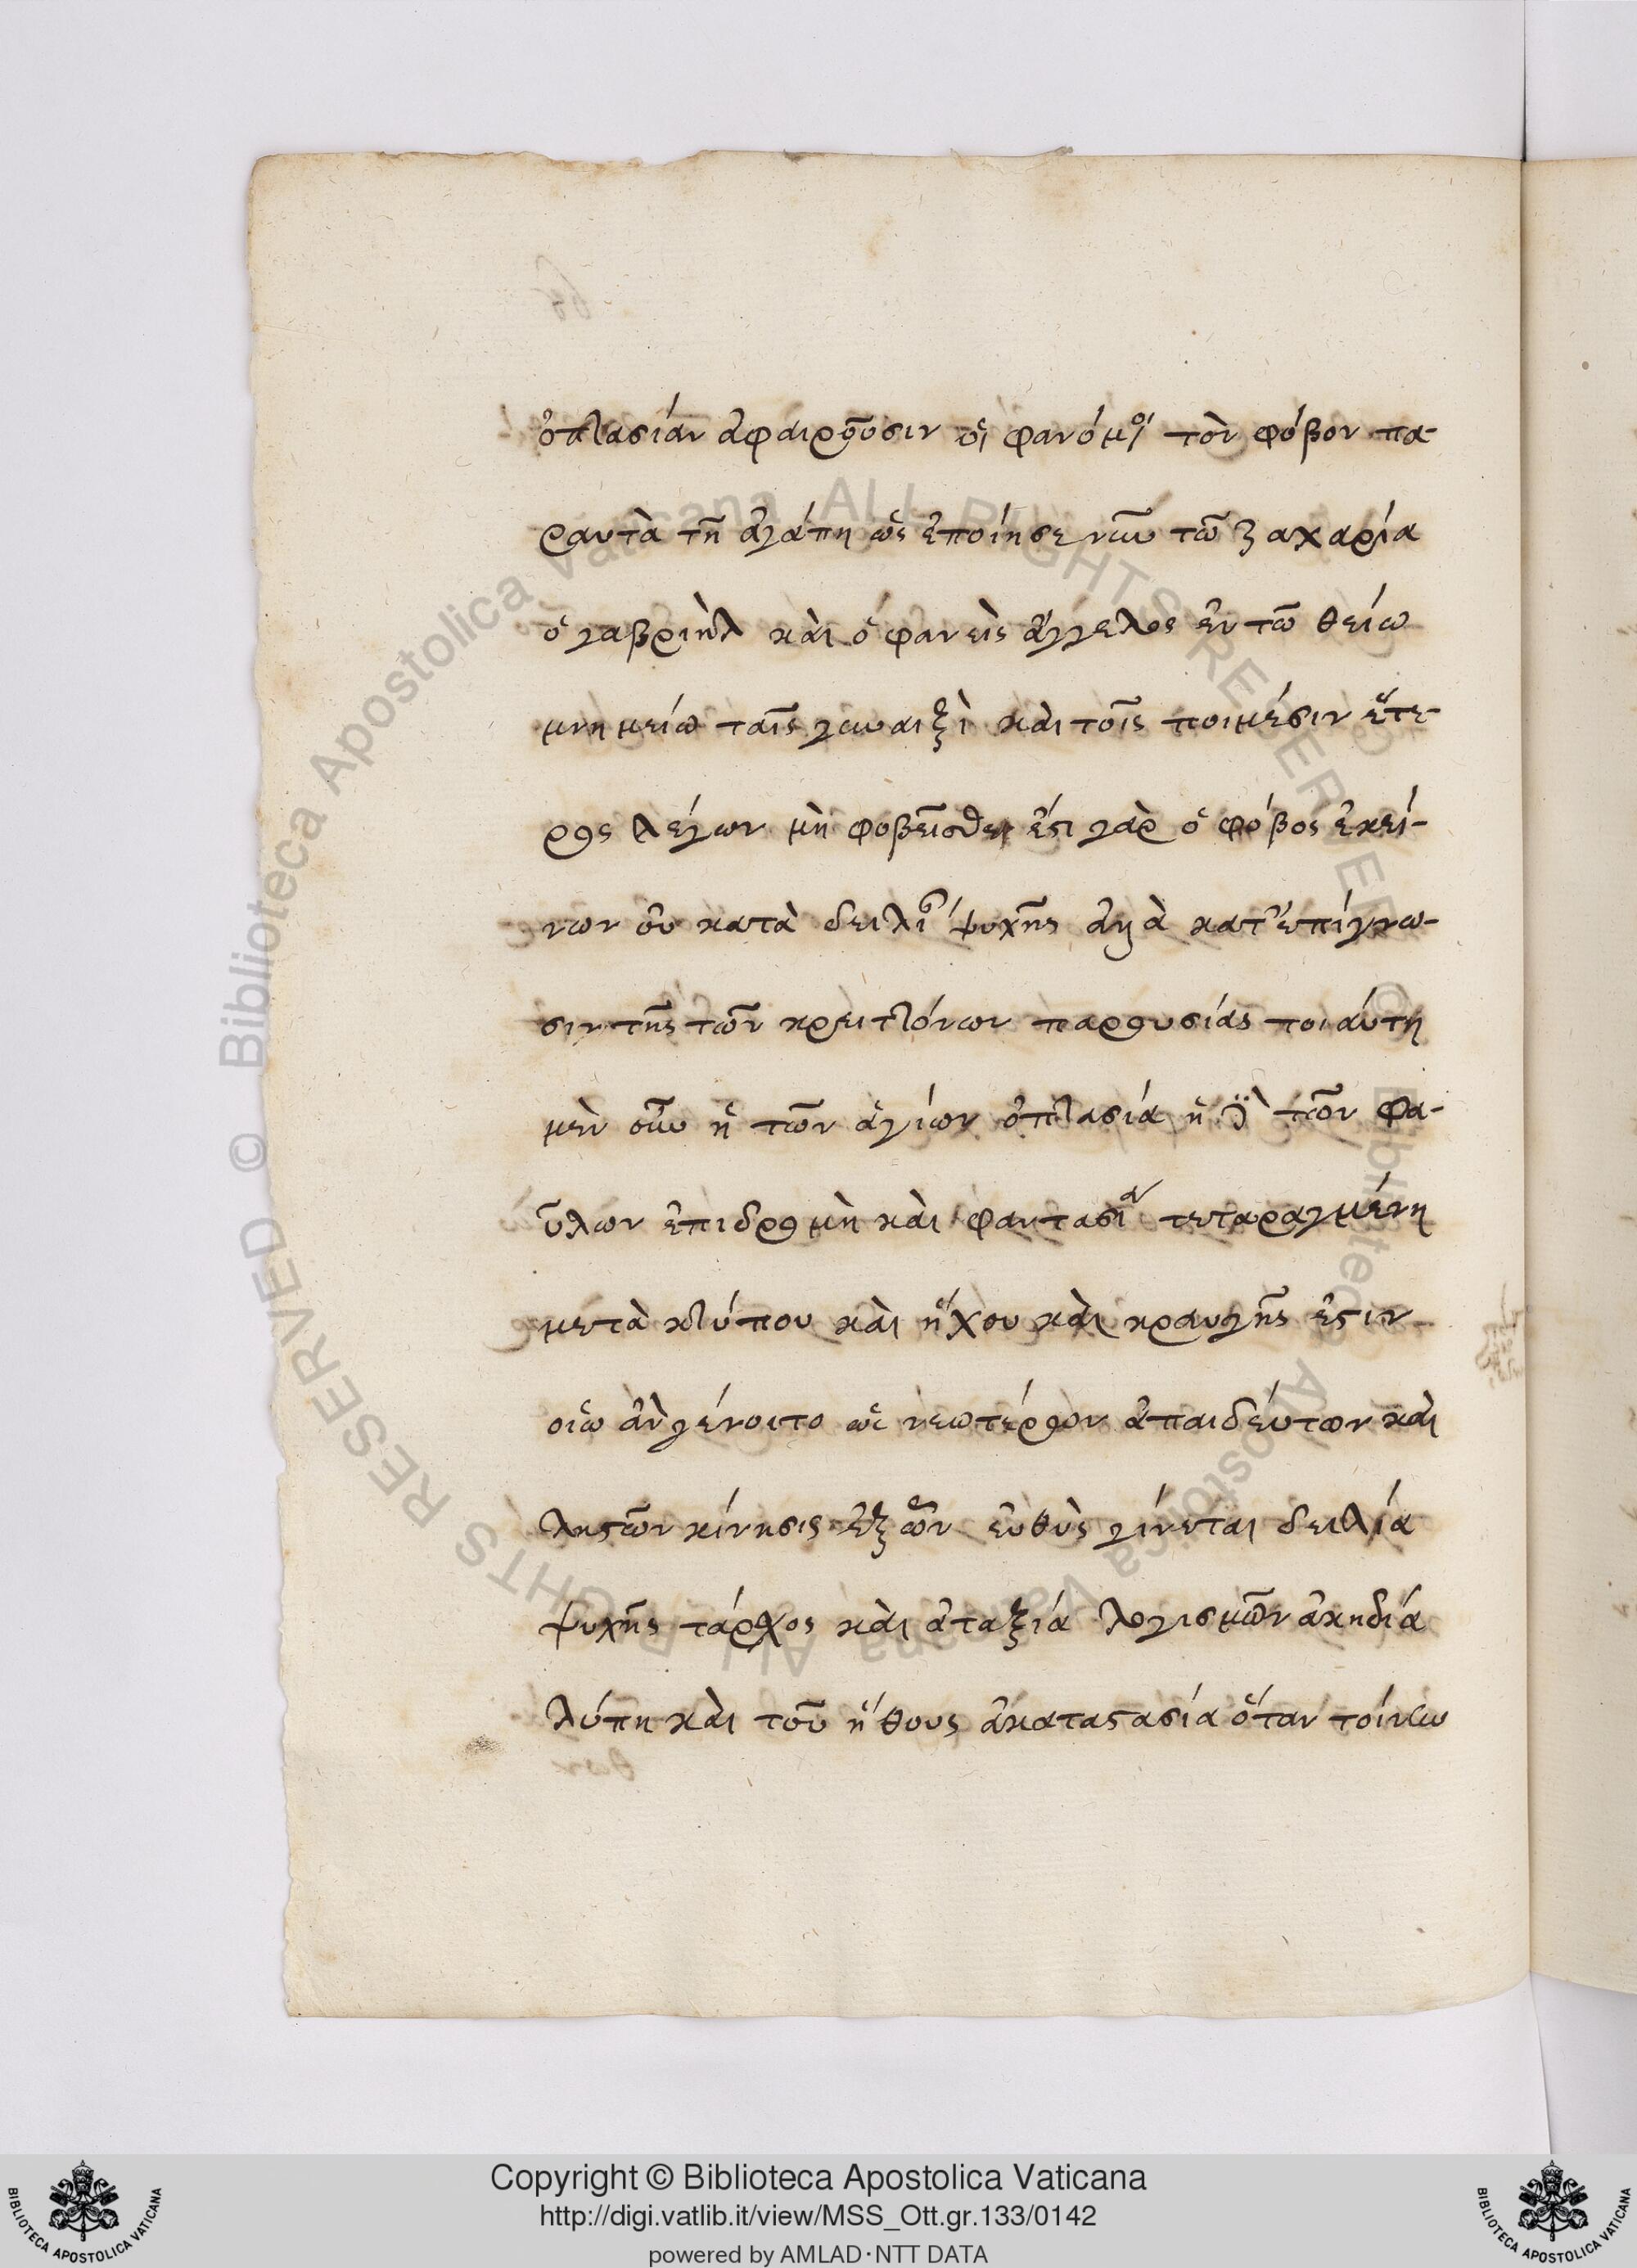 ὀπτασίαν ἀφαιροῦσιν οἱ φανόμοι τὸν φόβον πα-
ραυτὰ τῆ ἀγάπη ὡς ἐποίησε νῦν τῶ ζαχαρία
ὁ γαβριὴλ καὶ ὁ φανεὶς ἄγγελος ἐν τῶ θείω
μνημείω ταῖς γυναιξὶ καὶ τοῖς ποιμέσιν ἕτε-
ρος λέγων μὴ φοβεῖσθε ἔστι γὰρ ὁ φόβος ἐκεί-
νων οὐ κατὰ δειλίαν ψυχῆς ἀλλὰ κατ' ἐπίγνω-
σιν τῆς τῶν κρειττόνων παρουσίας τοιάυτη
μὲν οὖν ἡ τῶν ἁγίων ὀπτασία ἡ δὲ τῶν φα-
ῦλων ἐπιδρομὴ καὶ φαντασία τεταραγμένη
μετὰ κτύπου καὶ ἤχου καὶ κραυγῆς ἐστιν
οἵω ἀν γένοιτο ὡς νεωτέρων ἀπαιδέυτων καὶ
ληστῶν κίνησις ἐξ ὧν ἐυθὺς γίνεται δειλία
ψυχῆς τάραχος καὶ ἀταξία λογισμῶν ἀκηδία
λύπη καὶ τοῦ ἤθους ἀκαταστασία ὅταν τοίνυν
Copyright © Biblioteca Apostolica Vaticana
http://digi.vatlib.it/view/MSS_Ott.gr.133/0142
powered by AMLAD·NTT DATA
BIBLIOTECA APOSTOLICA VATICANA
BIBLIOTECA APOSTOLICA VATICANA
© Biblioteca Apostolica Vaticana ALL RIGHTS RESERVED
© Biblioteca Apostolica Vaticana ALL RIGHTS RESERVED